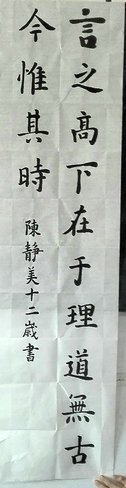 言之高下在于理道無古
今惟其時
陳靜美十二歲書